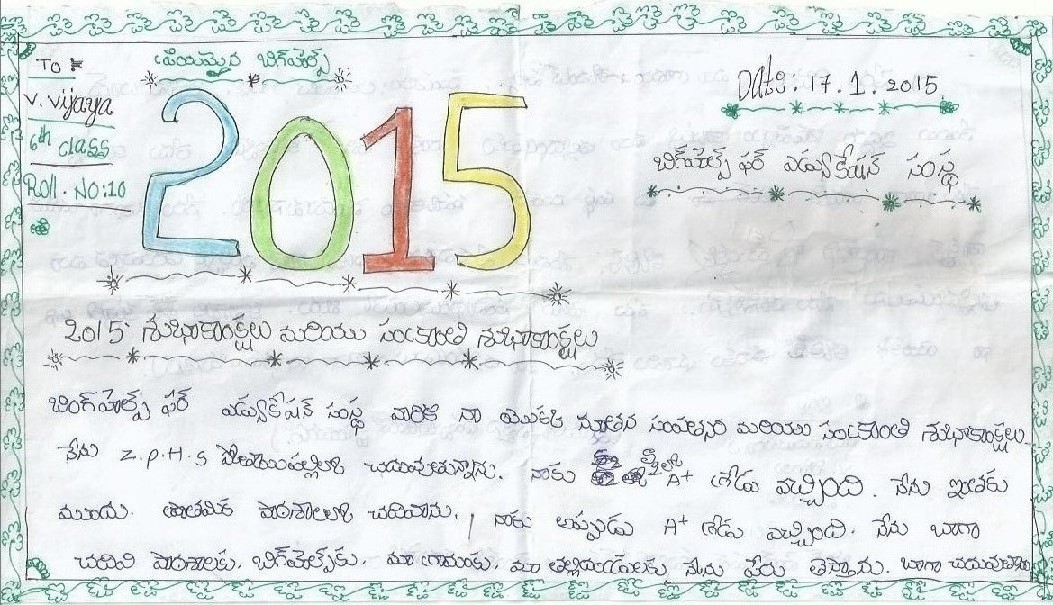 TO :
V. Vijaya
6th class
Roll. No:10
ప్రియమైన బిగ్‌హెల్ప్
2015
Date: 17.1.2015.
బిగ్‌హెల్ప్ ఫర్ ఎడ్యుకేషన్ సంస్థ
2015 శుభాకాంక్షలు మరియు సంక్రాంతి శుభాకాంక్షలు
బిగ్‌హెల్ప్ ఫర్ ఎడ్యుకేషన్ సంస్థ వారికి నా యొక్క నూతన సంవత్సర మరియు సంక్రాంతి శుభాకాంక్షలు.
నేను Z.P.H.S పోతాయిపల్లిలో చదువుతున్నాను. నాకు ఈ A+ గ్రేడు వచ్చింది. నేను ఇంతకు
ముందు ప్రాథమిక పాఠశాలలో చదివాను. నాకు అప్పుడు A+ గ్రేడు వచ్చింది. నేను బాగా
చదివి పాఠశాలకు, బిగ్‌హెల్ప్‌కు, మా గ్రామంకు, మా తల్లిదండ్రులకు మంచి పేరు తెస్తాను. బాగా